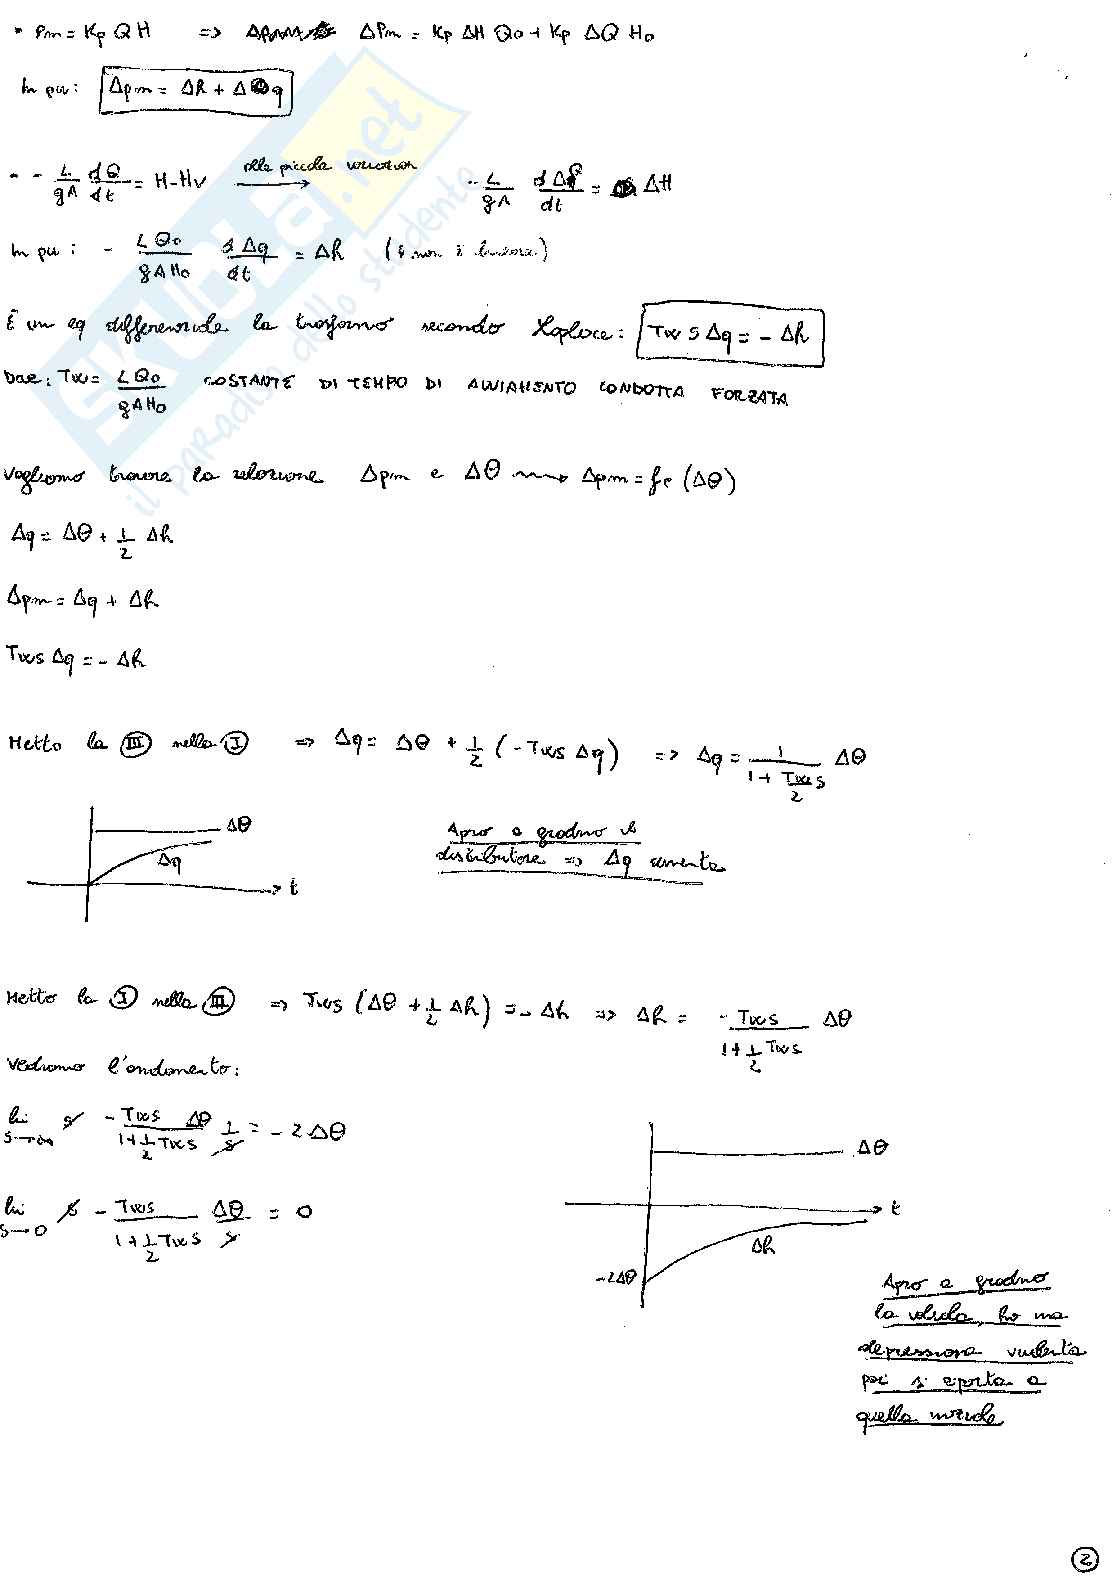 • Pm = Kp Q H => ΔPm = Kp ΔH Q0 + Kp ΔQ H0
In pu: Δpm = Δh + Δq
- - L/gA dQ/dt = H-Hv → alle piccole variazioni - L/gA dΔQ/dt = ΔH
In pu: - LQ0/gAH0 dΔq/dt = Δh
È un eq differenziale la trasformo secondo Laplace: Tw s Δq = - Δh
Dove: Tw = LQ0/gAH0 COSTANTE DI TEMPO DI AVVIAMENTO CONDOTTA FORZATA
Vogliamo trovare la relazione Δpm e Δθ ⟿ Δpm = f (Δθ)
Δq = Δθ + 1/2 Δh
Δpm = Δq + Δh
Tw s Δq = - Δh
Metto la III nella I => Δq = Δθ + 1/2 (- Tw s Δq) => Δq = 1/(1 + Tw s/2) Δθ
Δθ
Δq
t
Apro a gradino il
distributore => Δq aumenta
Metto la I nella III => Tw s (Δθ + 1/2 Δh) = - Δh => Δh = - Tw s/(1 + 1/2 Tw s) Δθ
Vediamo l'andamento:
lim s→∞ s - Tw s/(1 + 1/2 Tw s) Δθ 1/s = - 2 Δθ
lim s→0 s - Tw s/(1 + 1/2 Tw s) Δθ/s = 0
Δθ
t
Δh
-2Δθ
Apro a gradino
la valvola, ho una
depressione violenta
poi si riporta a
quella iniziale
2
SKUOLA.net
il paradiso dello studente